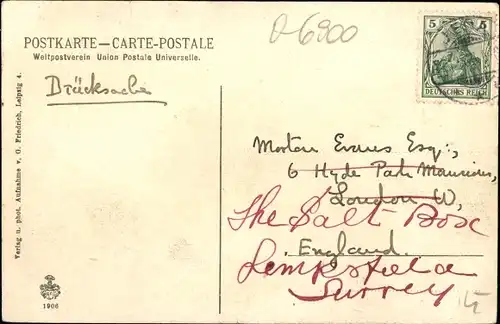 o-6900
POSTKARTE — CARTE-POSTALE
Weltpostverein Union Postale Universelle.
Drucksache
5 5
DEUTSCHES REICH
Morton Evans Esq:,
6 Hyde Park Mansions,
London W,
The Salt Box
England.
Limpsfield
Surrey
Verlag u. phot. Aufnahme v. O. Friedrich, Leipzig 4.
1906